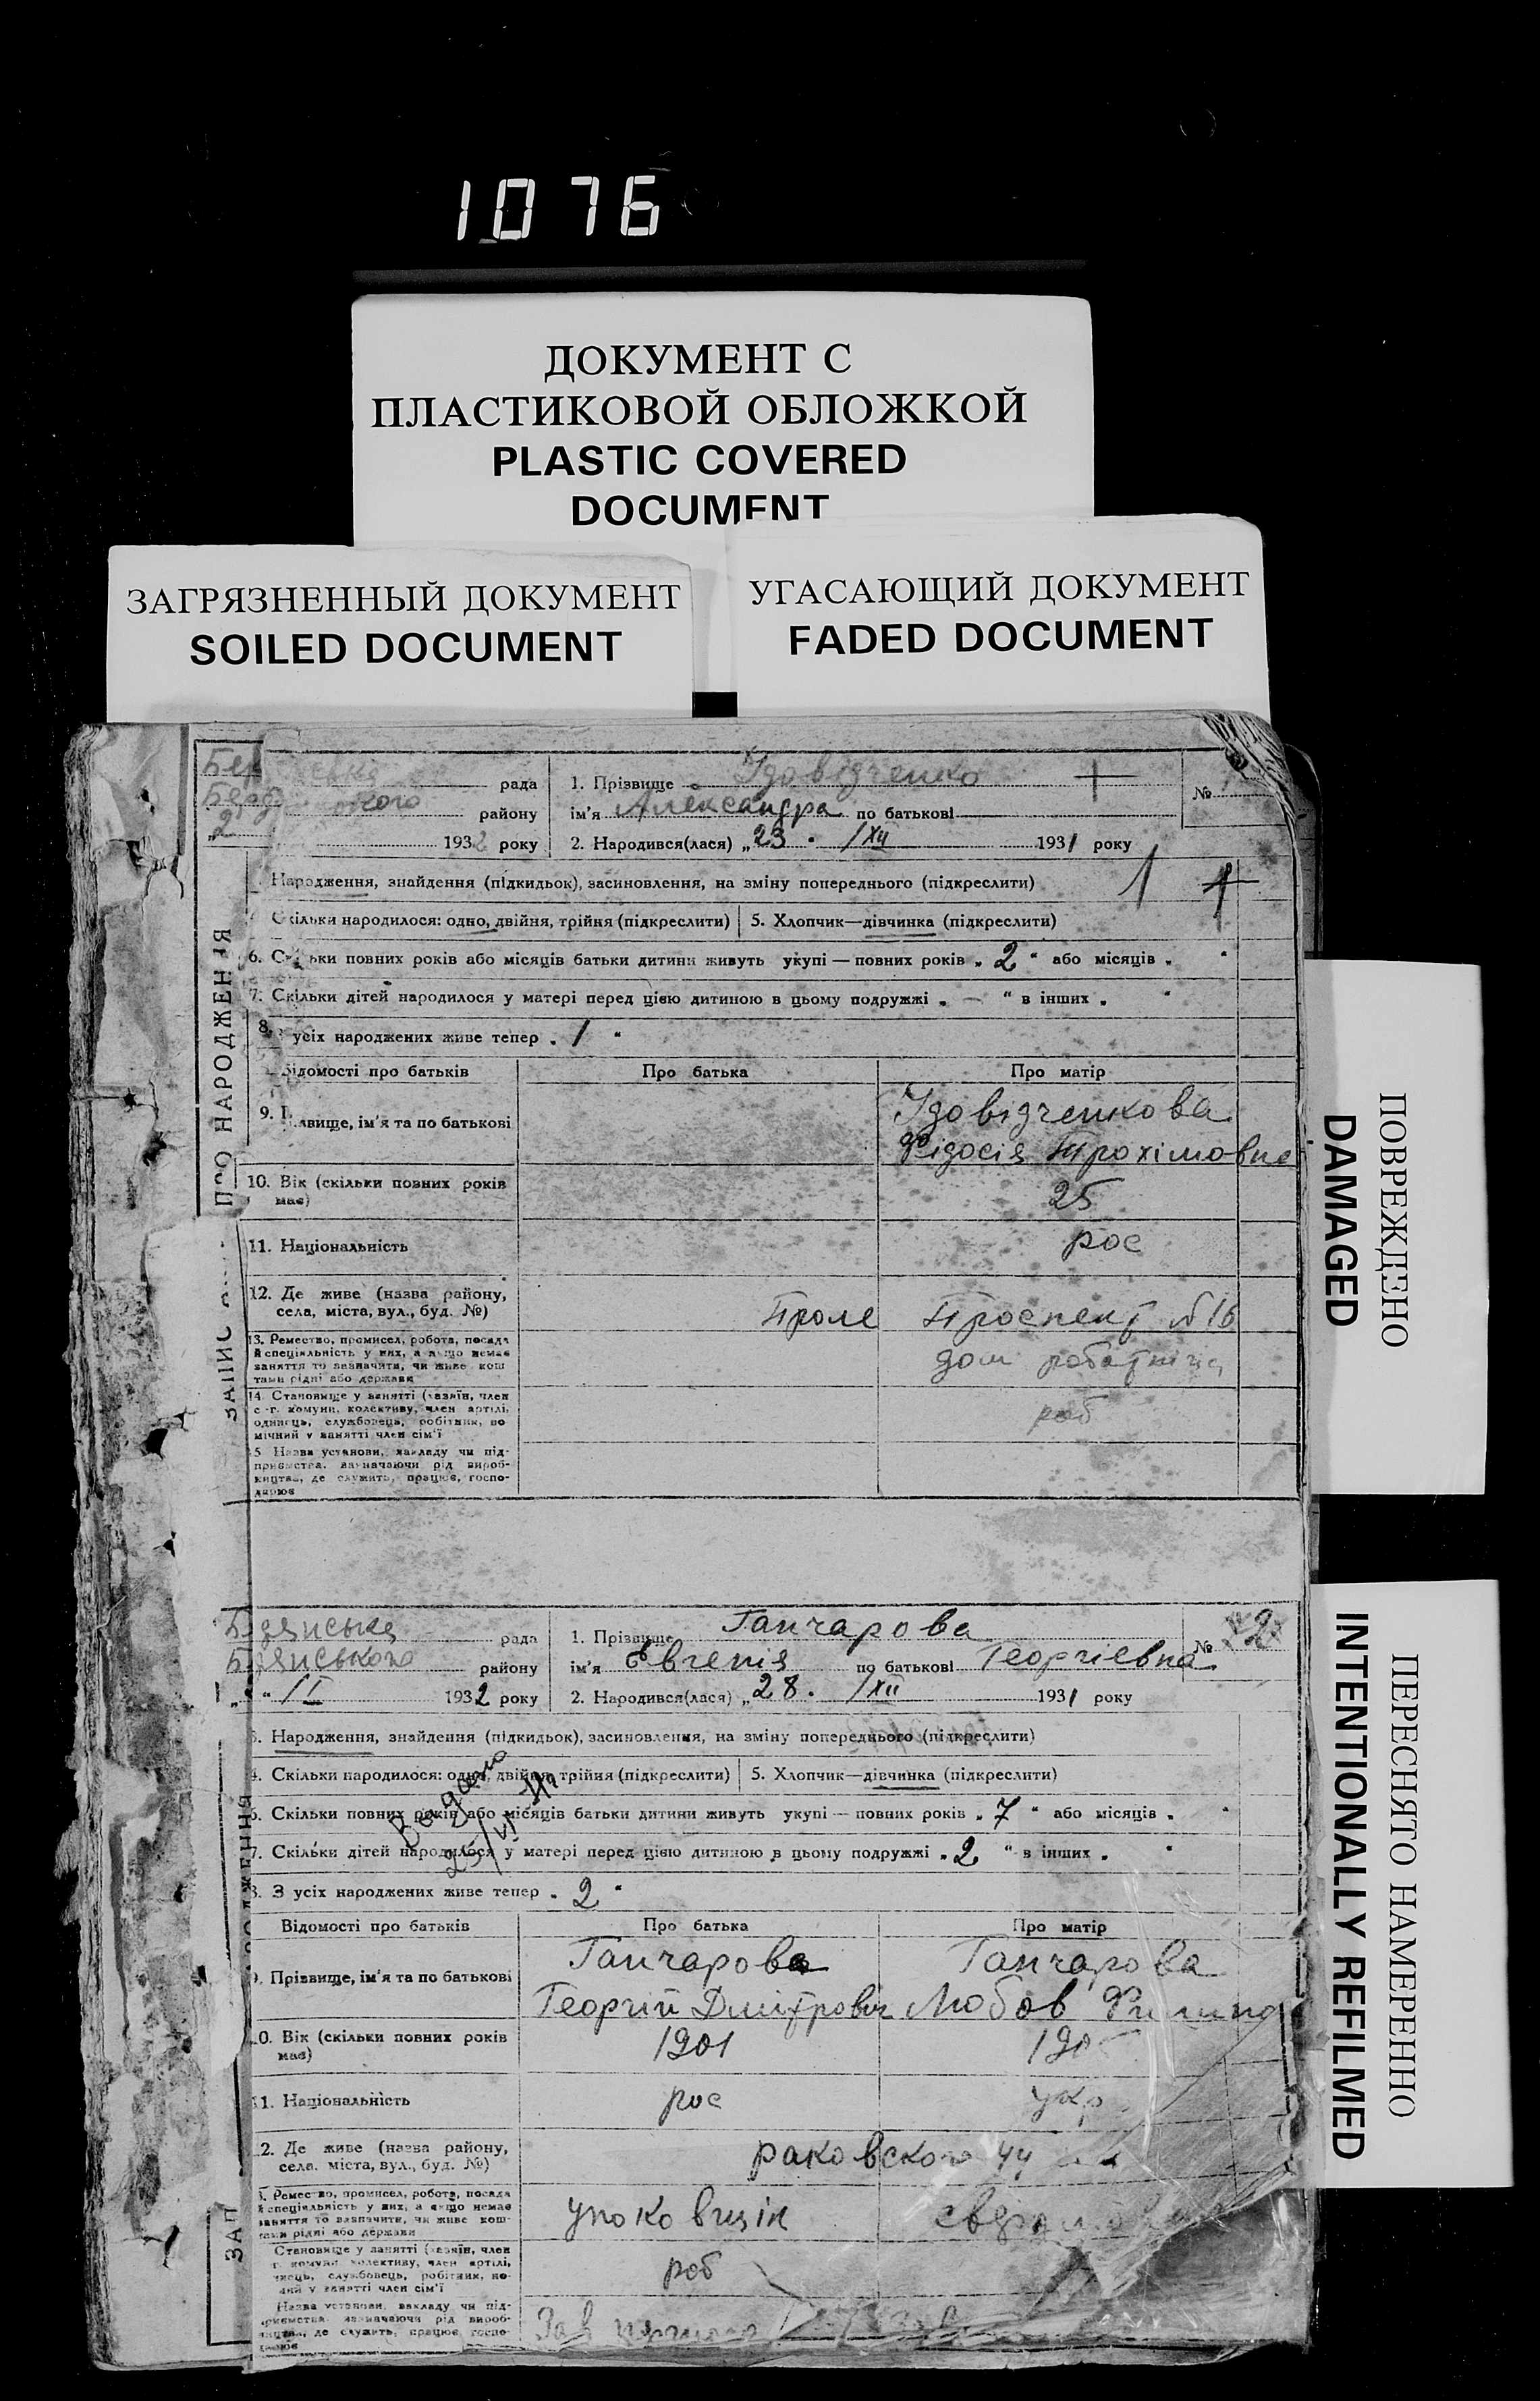 1076
ДОКУМЕНТ С
ПЛАСТИКОВОЙ ОБЛОЖКОЙ
PLASTIC COVERED
DOCUMENT
ЗАГРЯЗНЕННЫЙ ДОКУМЕНТ
SOILED DOCUMENT
УГАСАЮЩИЙ ДОКУМЕНТ
FADED DOCUMENT
ПОВРЕЖДЕНО
DAMAGED
ПЕРЕСНЯТО НАМЕРЕННО
INTENTIONALLY REFILMED
ПРО НАРОДЖЕННЯ
рада
1. Прізвище Удовідченко
№
району
ім'я Александра по батькові
1932 року
2. Народився(лася) „23. /XII 1931 року
Народження, знайдення (підкидьок), засиновлення, на зміну попереднього (підкреслити)
Скільки народилося: одно, двійня, трійня (підкреслити) 5. Хлопчик—дівчинка (підкреслити)
6. Скільки повних років або місяців батьки дитини живуть укупі — повних років „2“ або місяців „ “
7. Скільки дітей народилося у матері перед цією дитиною в цьому подружжі „ — “ в інших „ “
8. усіх народжених живе тепер „1“
Відомості про батьків Про батька Про матір
9. ім'я та по батькові Удовідченкова
Фідосія Трохімовна
10. Вік (скільки повних років має) 25
11. Національність рос
12. Де живе (назва району,
села, міста, вул., буд. №) Проле Проспект №16
13. Ремество, промисел, робота, посада
й спеціяльність у них, а якщо немає
заняття то зазначити, чи живе кош
тами рідні або держави
дом робатніця
14. Становище у занятті (хазяїн, член
с.-г. комуни, колективу, член артілі,
одинець, службовець, робітник, по
мічний у занятті член сім'ї
роб
15 Назва установи, закладу чи під-
приємства, зазначаючи рід вироб-
ництва, де служить, працює, госпо-
дарює
рада
1. Прізвище Ганчарова
№ 2
району
ім'я Євгенія по батькові Георгіевна
„ “ /I 1932 року
2. Народився(лася) „28. /XII 1931 року
3. Народження, знайдення (підкидьок), засиновлення, на зміну попереднього (підкреслити)
4. Скільки народилося: одно, двійня, трійня (підкреслити) 5. Хлопчик—дівчинка (підкреслити)
6. Скільки повних років або місяців батьки дитини живуть укупі — повних років „7“ або місяців „ “
7. Скільки дітей народилося у матері перед цією дитиною в цьому подружжі „2“ в інших „ “
8. З усіх народжених живе тепер „2“
Відомості про батьків Про батька Про матір
9. Прізвище, ім'я та по батькові Ганчарова Ганчарова
Георгій Дмітрович Любов
10. Вік (скільки повних років має) 1901
11. Національність рос укр
12. Де живе (назва району,
села, міста, вул., буд. №) раковского 44
Ремество, промисел, робота, посада
й спеціяльність у них, а якщо немає
заняття то зазначити, чи живе кош-
тами рідні або держави
упоковщік
Становище у занятті (хазяїн, член
г. комуни колективу, член артілі,
службовець, робітник, по-
у занятті член сім'ї
роб
Назва установи, закладу чи під-
приємства зазначаючи рід вироб-
ництва, де служить, працює, госпо-